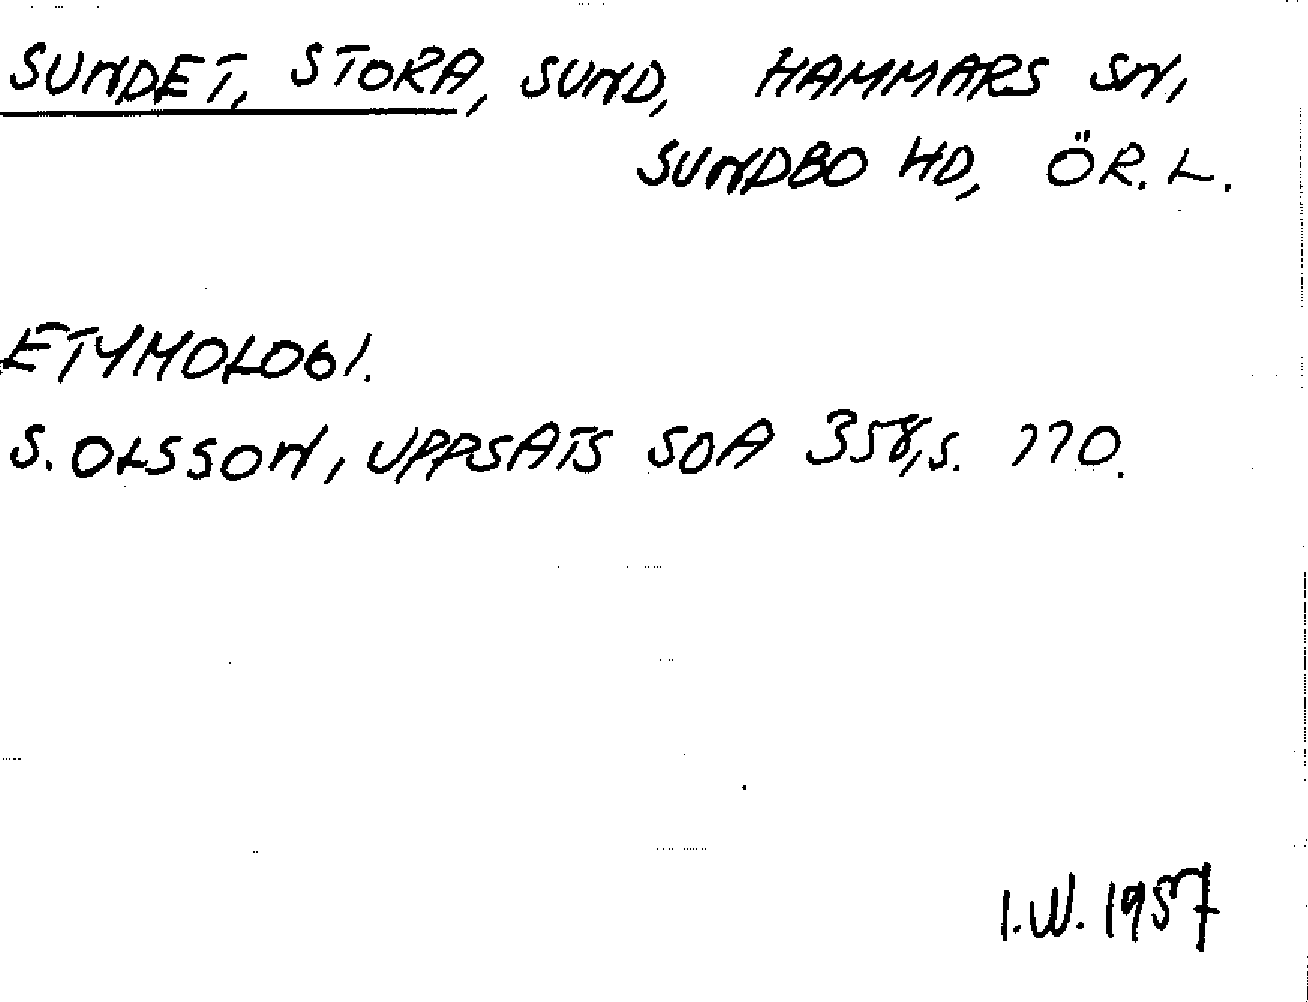 SUNDET, STORA, SUND, HAMMARS SN,
SUNDBO HD, ÖR. L.
ETYMOLOGI.
S. OLSSON, UPPSATS SOA 358, S. 770.
I.W. 1957